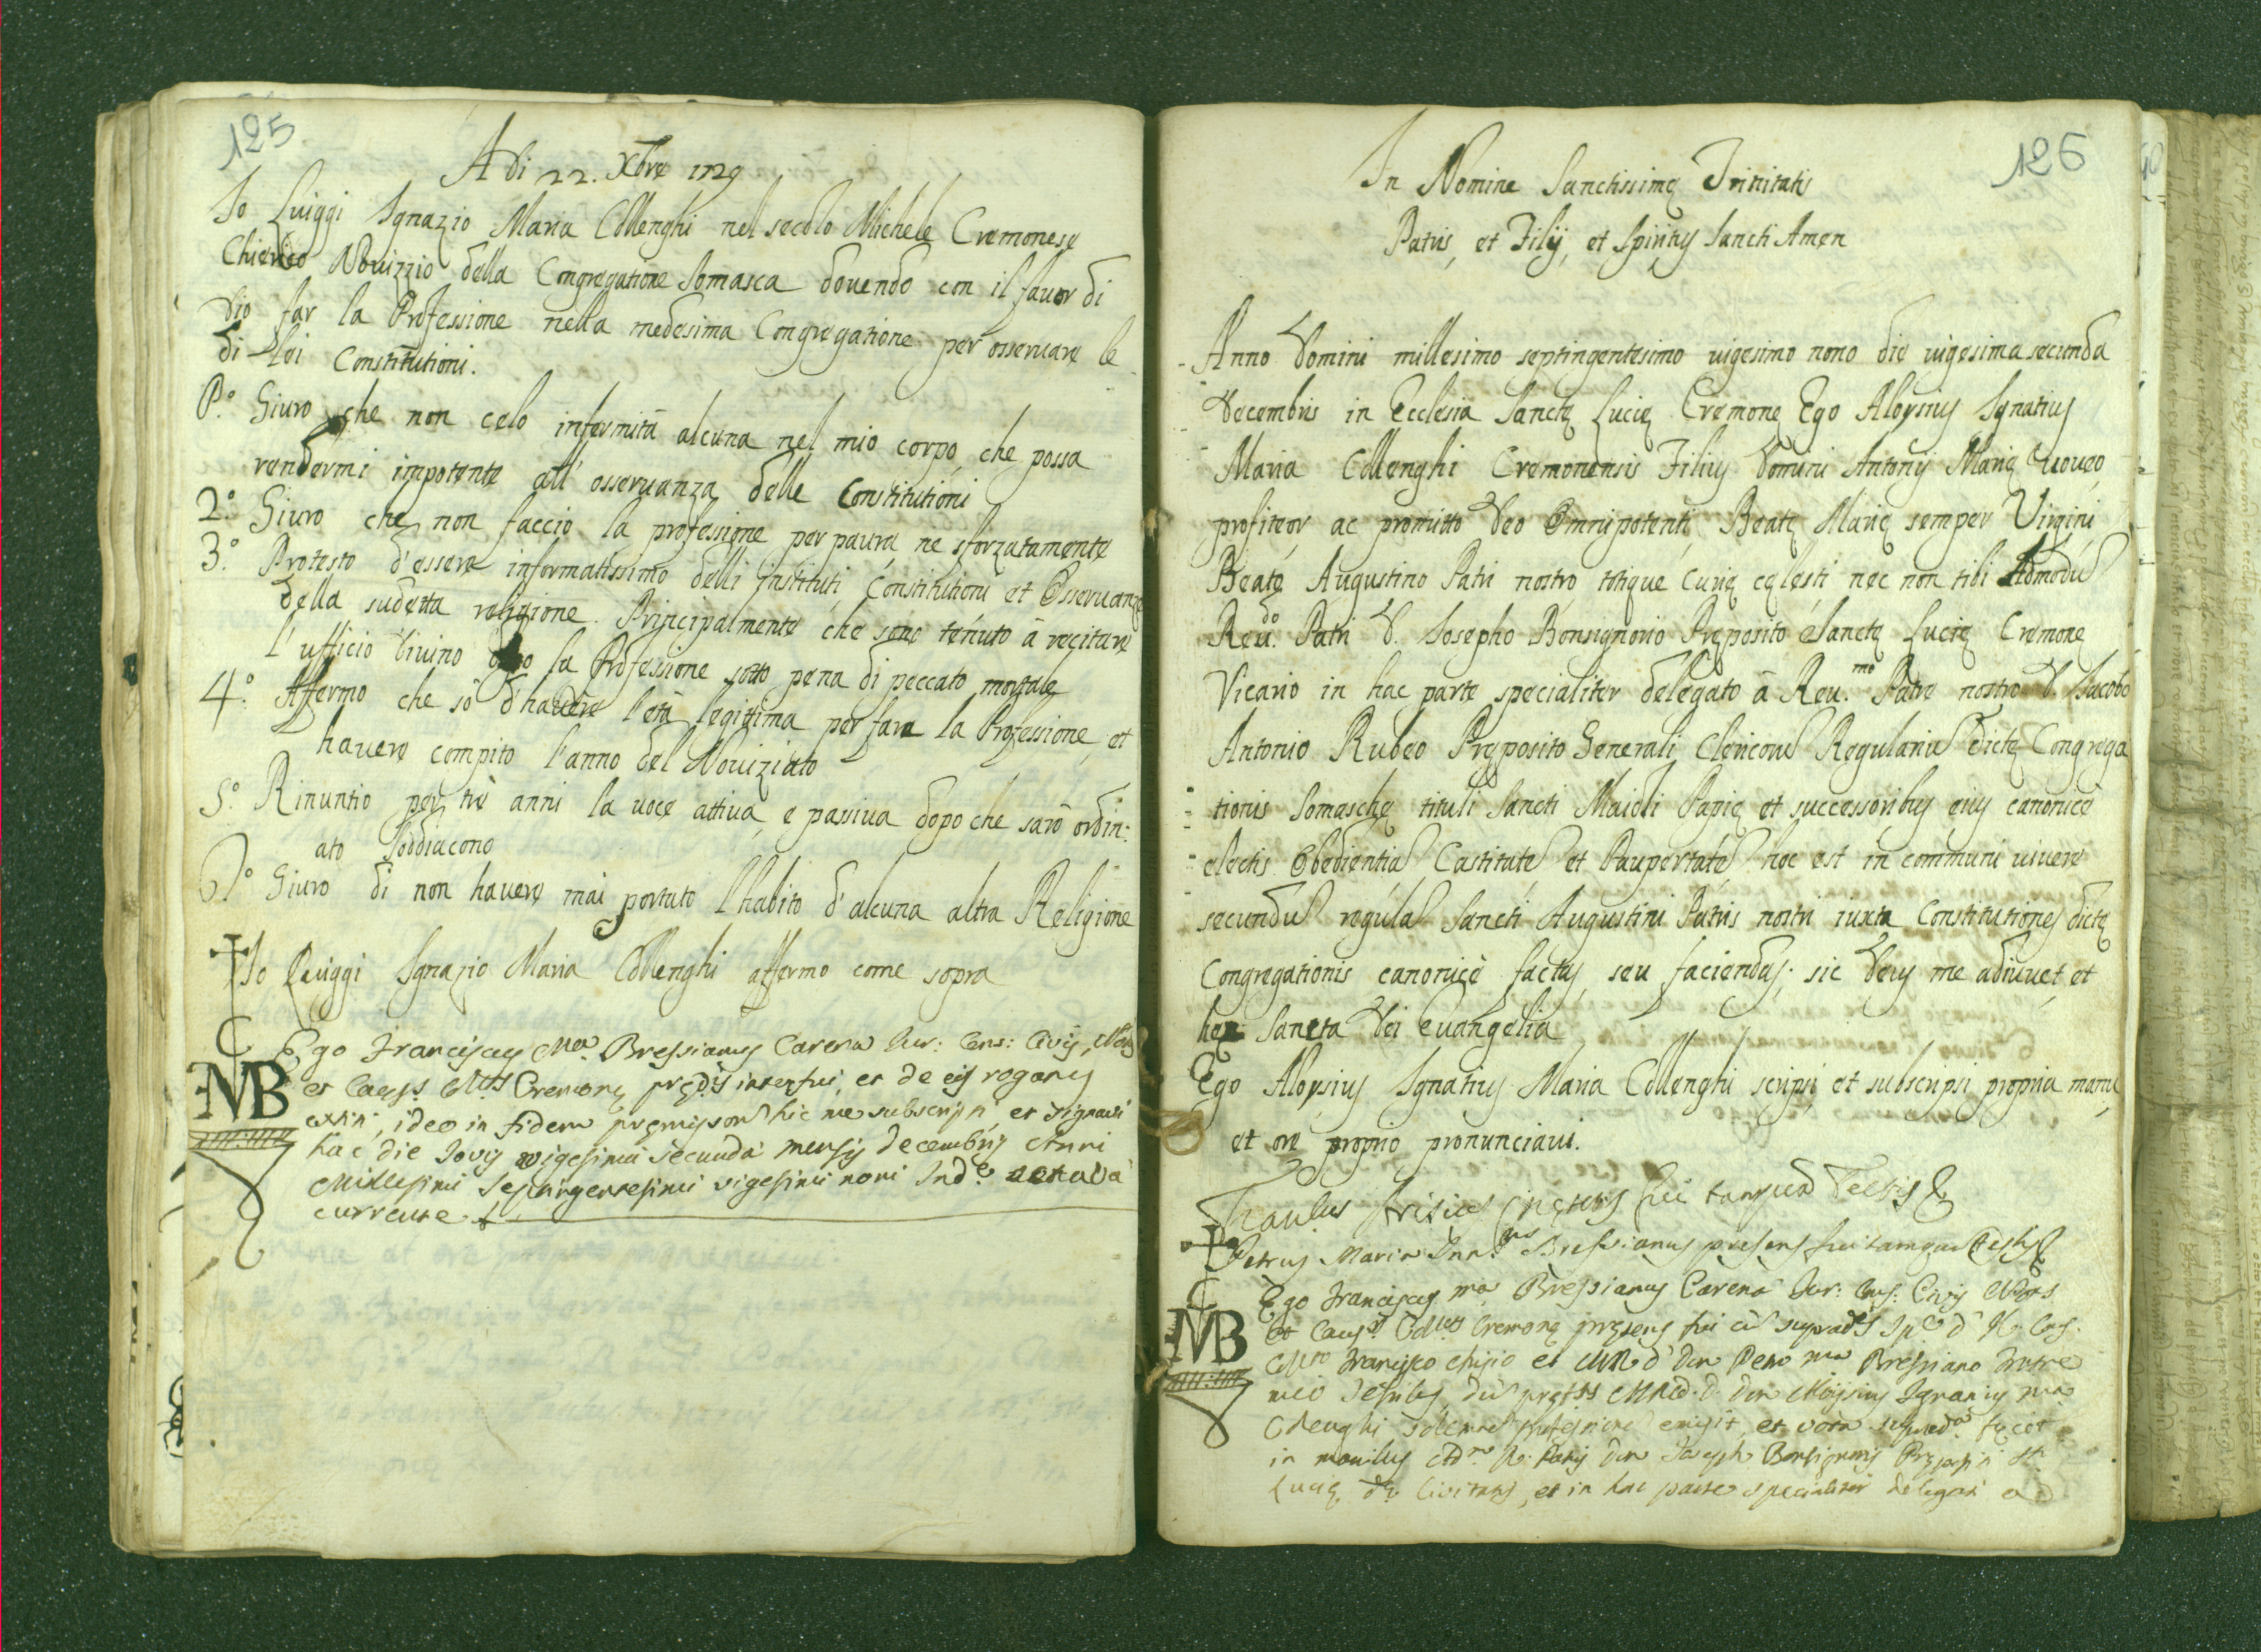 125
A di 22. Xbre 1729
Io Luiggi Ignazio Maria Collenghi nel secolo Michele Cremonese
Chierico Novizzio della Congregatione Somasca dovendo con il favor di
Dio far la Professione nella medesima Congregatione per osservare le
di Lei Constitutioni.
P.o Giuro che non celo infermità alcuna nel mio corpo, che possa
rendermi impotente all' osservanza delle Constitutioni
2.o Giuro che non faccio la professione per paura ne sforzatamente
3.o Protesto d'essere informatissimo delli instituti, Constitutioni et Osservanze
della sudetta religione. Principalmente che sono tenuto à recitare
l'ufficio Divino la Professione sotto pena di peccato mortale
4.o Affermo che sò d'havere l'età legittima per fare la Professione, et
havere compito l'anno del Noviziato
5.o Rinuntio per trè anni la voce attiva, e passiva dopo che sarò ordin:
ato Soddiacono
6.o Giuro di non havere mai portato l'habito d'alcuna altra Religione
Io Luiggi Ignazio Maria Collenghi affermo come sopra
C
MB
Ego Franciscus M.a Bressianus Carena Iur: Cons: Civis,
et Caus.s Cremonę interfui, et de eis rogatus
ideo in fidem pręmissor hic me subscripsi, et signavi
hac die Iovis vigesima secunda mensis decembris Anni
Millesimi Septingentesimi vigesimi noni Ind.e octava
currente
126
In Nomine Sanctissimę Trinitatis
Patris, et Filij, et Spiritus Sancti Amen
Anno Domini millesimo septingentesimo vigesimo nono die vigesima secunda
Decembris in Ecclesia Sanctę Lucię Cremonę Ego Aloysius Ignatius
Maria Collenghi Cremonensis Filius Domini Antonij Marię voveo,
profiteor, ac promitto Deo Omnipotenti, Beatę Marię semper Virgini,
Beato Augustino Patri nostro totique Curię cęlesti nec non tibi Admodu
Reu.do Patri D. Iosepho Bonsignorio Pręposito Sanctę Lucię Cremonę
Vicario in hac parte specialiter delegato à Reu.mo Patre nostro D. Iacobo
Antonio Rubeo Pręposito Generali Clericoru Regulariu dictę Congrega
tionis Somaschę tituli Sancti Maioli Papię et successoribus eius canonicè
electis Obedientia, Castitate et Paupertate hoc est in communi vivere
secundu regula Sancti Augustini Patris nostri iuxta Constitutiones dictę
Congregationis canonicè factas, seu faciendas; sic Deus me adiuvet, et
hęc Sancta Dei Evangelia
Ego Aloysius Ignatius Maria Collenghi scripsi, et subscripsi propria manu,
et ore proprio pronunciavi.
fui tanqua Testis
Petrus Maria Bressianus presens fui tamqua Testis
C
MB
Ego Franciscus M.a Bressianus Carena Iur: Cons: Civis
et Caus.s Cremonę pręsens fui cu
Francisco et Petro M.a Bressiano fratre
meo Testibus, du Aloysius Ignatius M.a
Collenghi emisit, et vota fecit
in manibus Patris Don Ioseph Bonsignorij Prępositi S.
Lucię Civitatis, et in hac parte specialiter delegati a